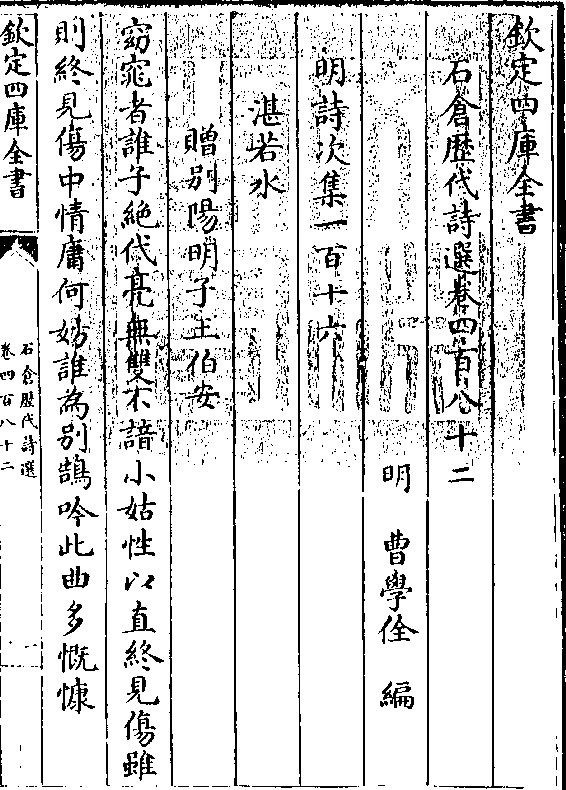 欽定四庫全書
石倉歴代詩選卷四百八十二
明　曹學佺　編
明詩次集一百十六
湛若水
贈别陽明子王伯安
窈窕者誰子絶代亮無雙不諳小姑性以直終見傷雖
則終見傷中情庸何妨誰為别鵠吟此曲多慨慷
欽定四庫全書
石倉歴代詩選
卷四百八十二
一